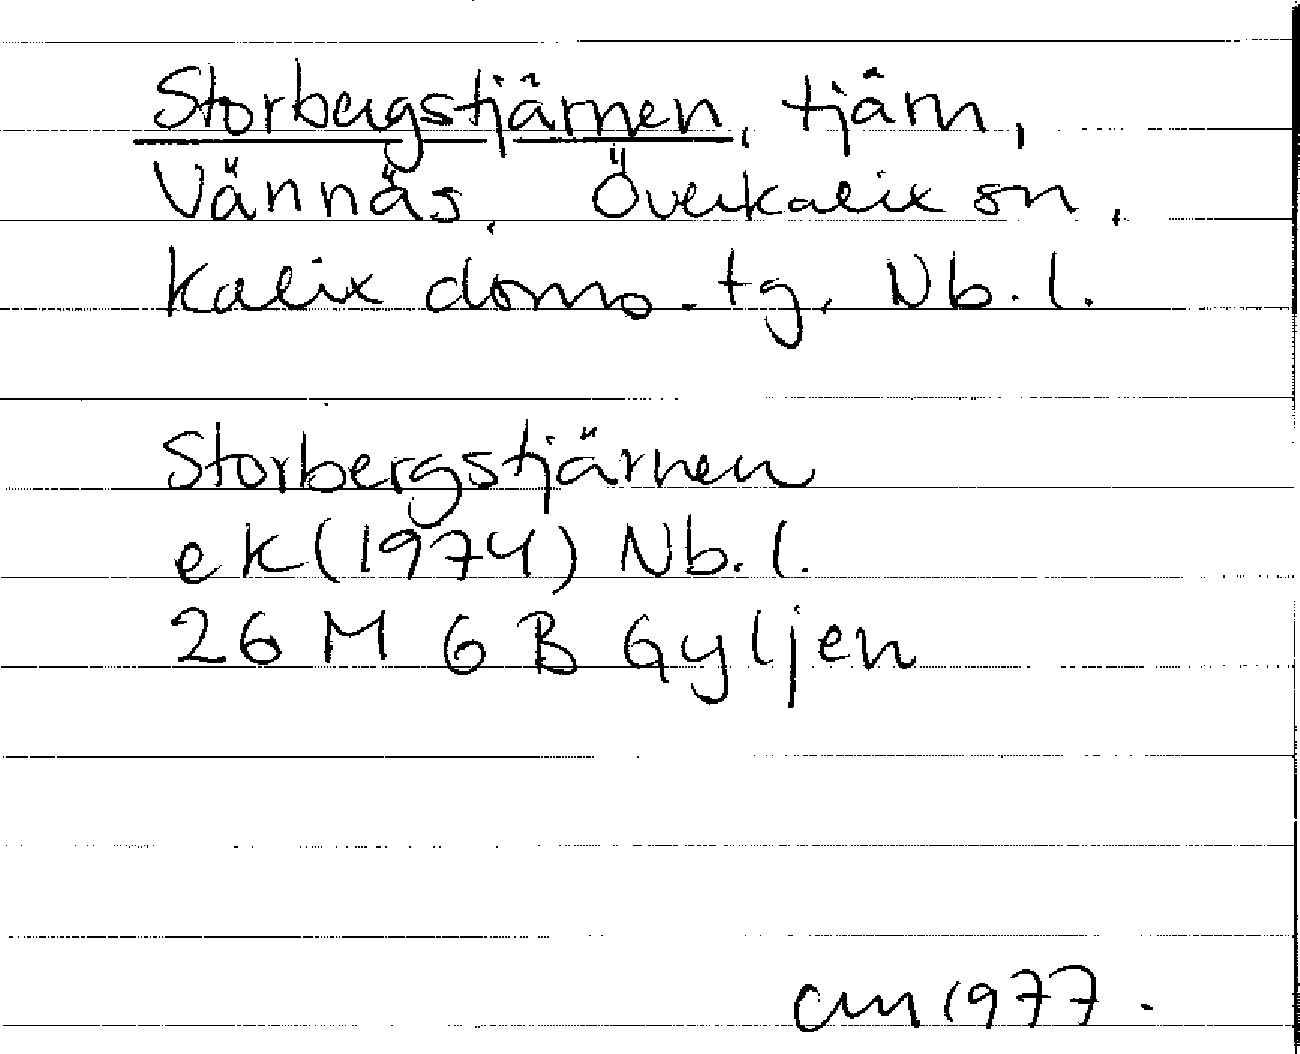 Storbergstjärnen, tjärn,
Vännäs, Överkalix sn,
Kalix doms. tg, Nb. l.
Storbergstjärnen
ek (1974) Nb. l.
26 M 6 B Gyljen
am 1977.